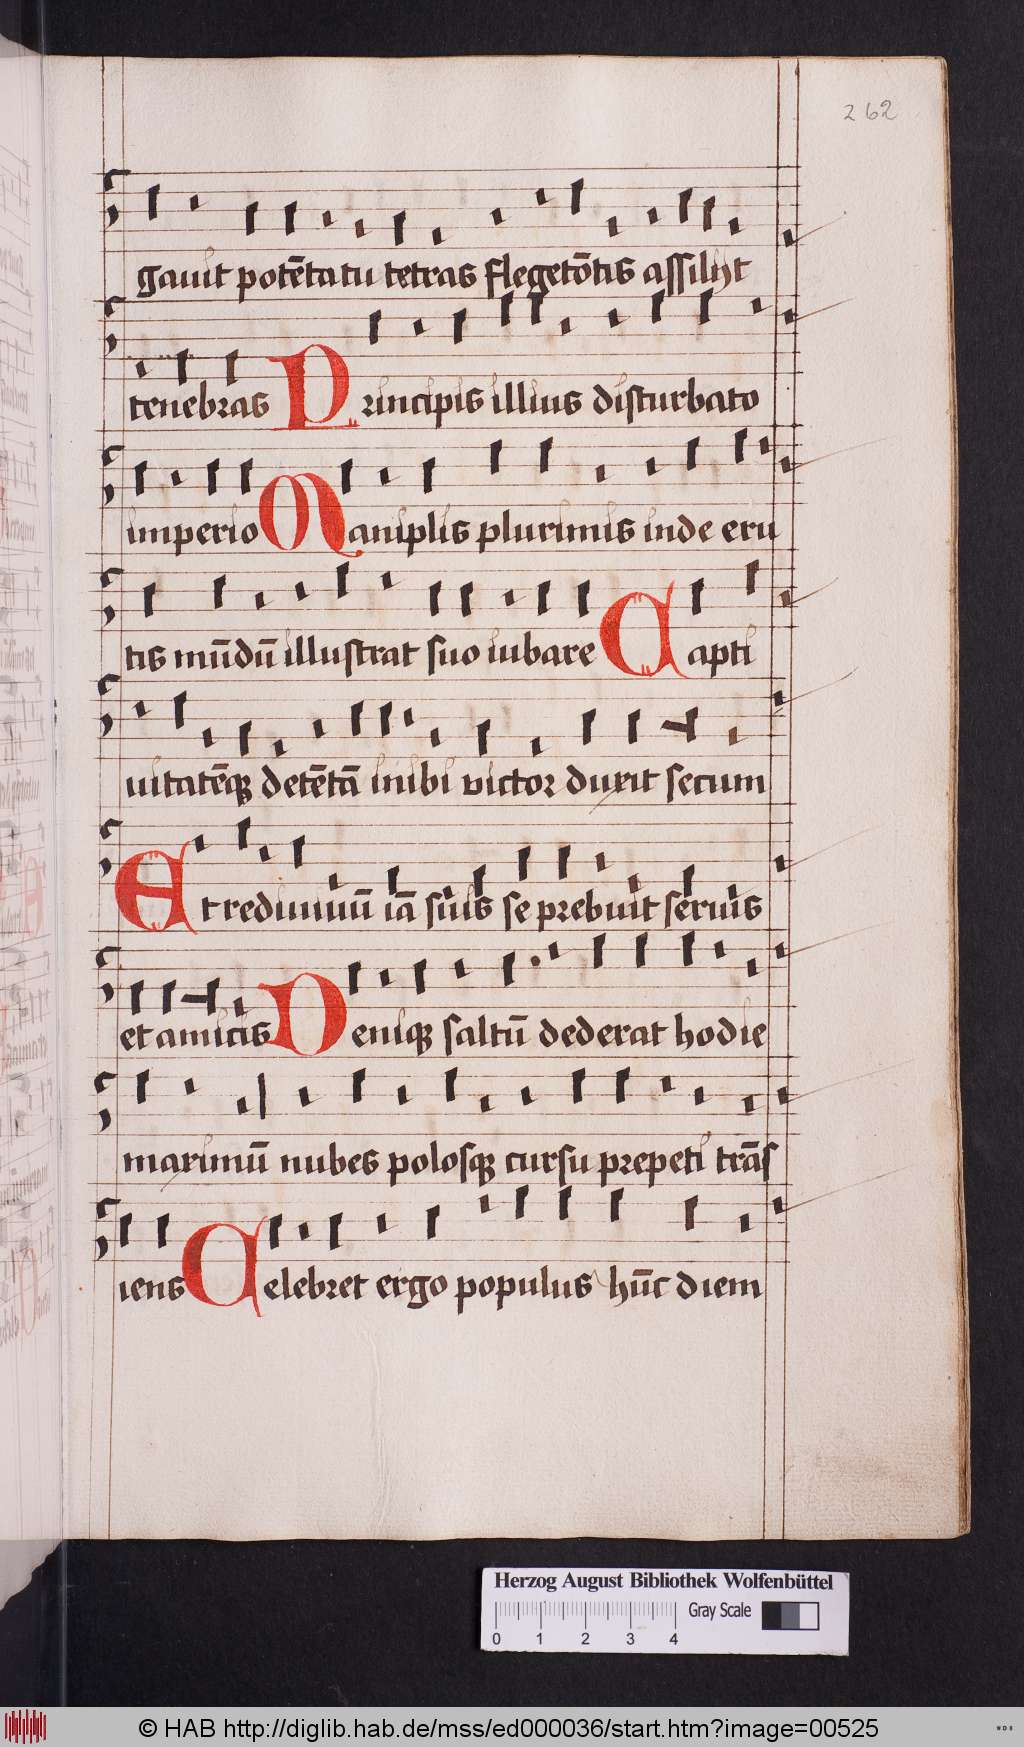 262
gauit potētatu tetras flegetōtis assilijt
tenebras Principis illius disturbato
imperio Maniplis plurimis inde eru
tis mūdū illustrat suo iubare Capti
uitatēqꝫ detētā inibi victor duxit secum
Et rediuiuū iā suis se prebuit seruis
et amicis Deniqꝫ saltū dederat hodie
maximū nubes polosqꝫ cursu prepeti trās
iens Celebret ergo populus hūc diem
Herzog August Bibliothek Wolfenbüttel
Gray Scale
0 1 2 3 4
© HAB http://diglib.hab.de/mss/ed000036/start.htm?image=00525